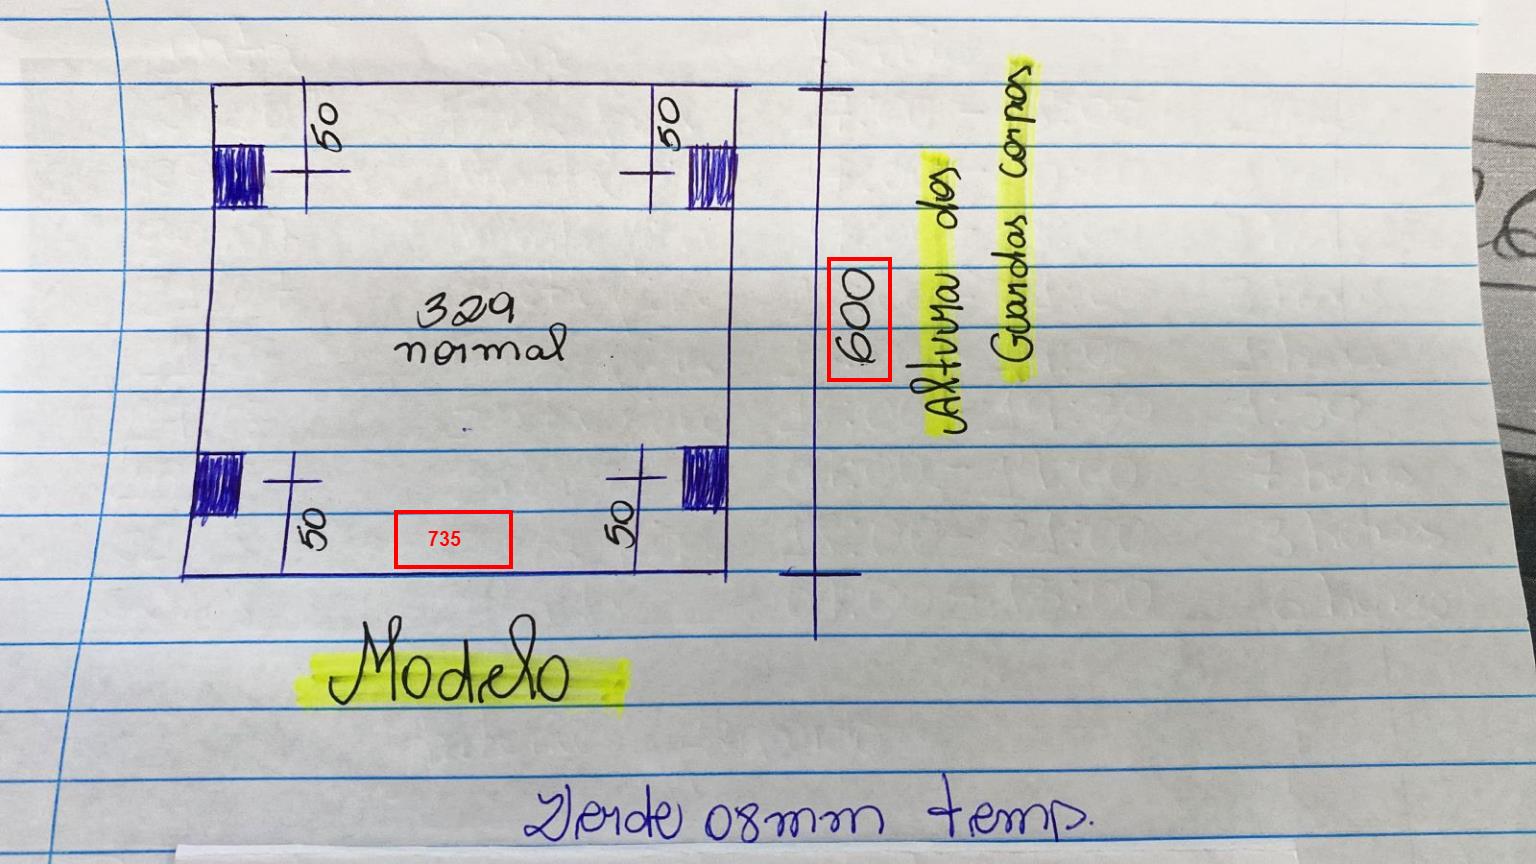 50
50
329
normal
50
735
50
Modelo
600
Altura dos
Guardas corpos
Verde 08mm temp.